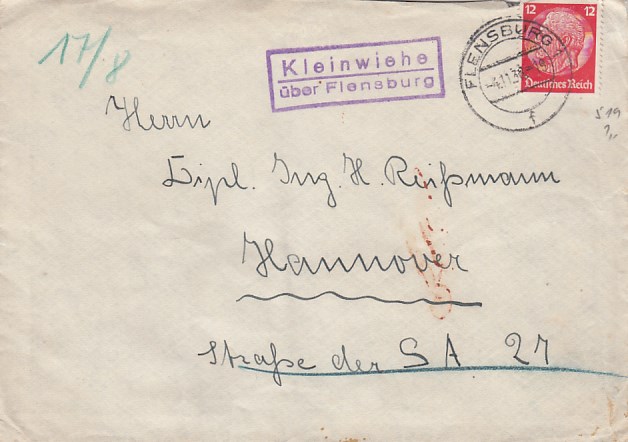 17/8
Kleinwiehe
über Flensburg
FLENSBURG
12 12
Deutsches Reich
Herrn
Dipl. Ing. H. Reißmann
Hannover
Straße der SA 27